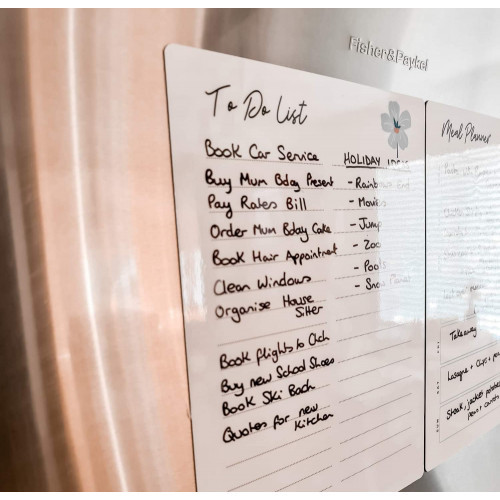 Fisher&Paykel
To Do List
Book Car Service
Buy Mum Bday Present
Pay Rates Bill
Order Mum Bday Cake
Book Hair Appointment
Clean Windows
Organise House
Sitter
Book flights to Chch
Buy new School Shoes
Book Ski Bach
Quotes for new
Kitchen
HOLIDAY IDEAS
- Rainbows End
- Movies
- Jump
- Zoo
- Pools
- Snow Planet
Meal Planner
Takeaway
Lasagne + Chips +
Steak, jacket potatoes
peas + carrots